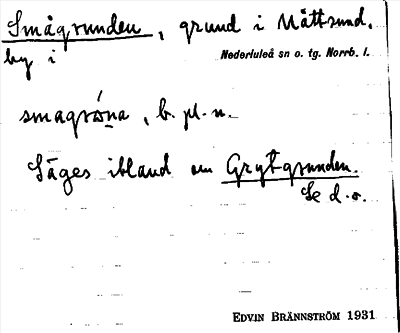 Smågrunden, grund i Måttsund,
by i Nederluleå sn o. tg. Norrb. l.
smagróna, b. pl. n.
Säges ibland om Grytgrunden.
Se d. o.
EDVIN BRÄNNSTRÖM 1931